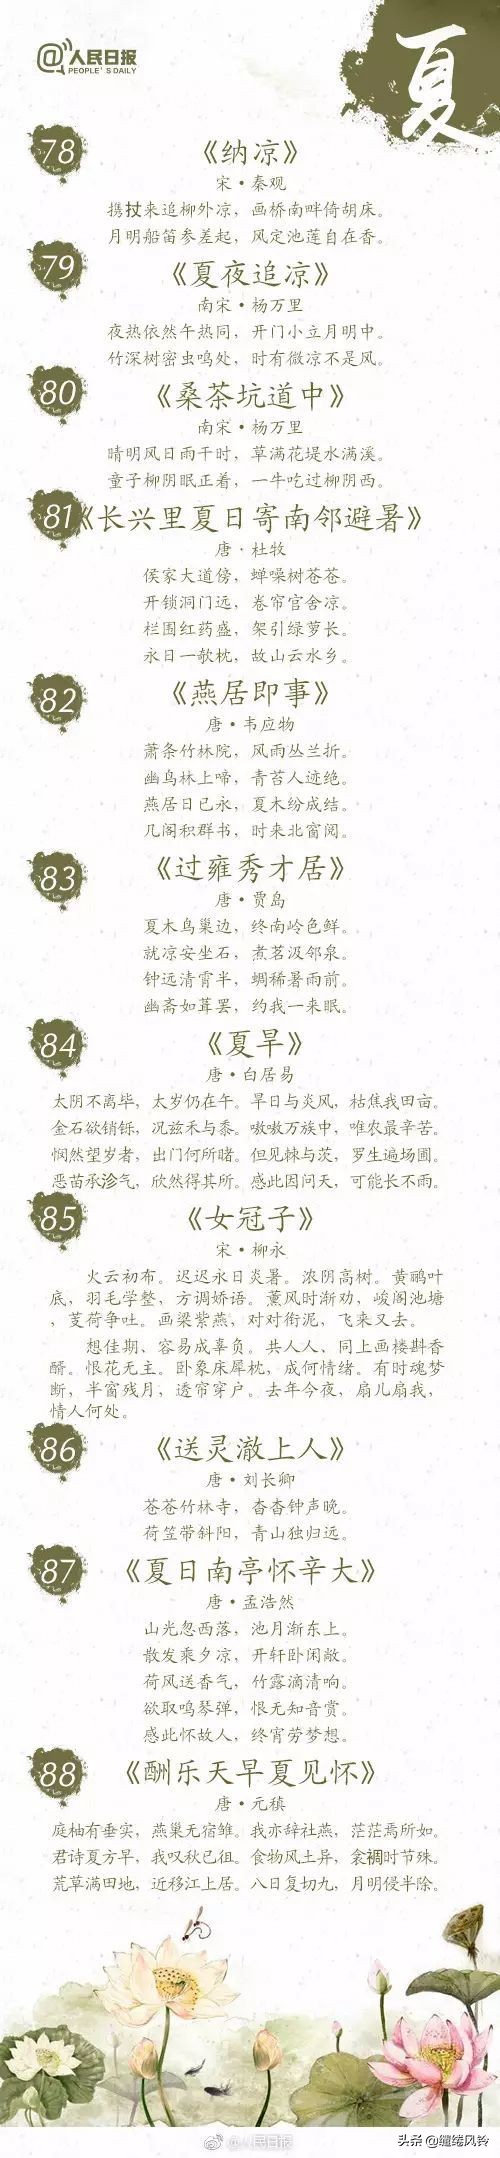 @人民日报
PEOPLE'S DAILY
夏
78
《纳凉》
宋·秦观
携扙来追柳外凉，画桥南畔倚胡床。
月明船笛参差起，风定池莲自在香。
79
《夏夜追凉》
南宋·杨万里
夜热依然午热同，开门小立月明中。
竹深树密虫鸣处，时有微凉不是风。
80
《桑茶坑道中》
南宋·杨万里
晴明风日雨干时，草满花堤水满溪。
童子柳阴眠正着，一牛吃过柳阴西。
81
《长兴里夏日寄南邻避暑》
唐·杜牧
侯家大道傍，蝉噪树苍苍。
开锁洞门远，卷帘官舍凉。
栏围红药盛，架引绿萝长。
永日一欹枕，故山云水乡。
82
《燕居即事》
唐·韦应物
萧条竹林院，风雨丛兰折。
幽鸟林上啼，青苔人迹绝。
燕居日已永，夏木纷成结。
几阁积群书，时来北窗阅。
83
《过雍秀才居》
唐·贾岛
夏木鸟巢边，终南岭色鲜。
就凉安坐石，煮茗汲邻泉。
钟远清霄半，蜩稀暑雨前。
幽斋如葺罢，约我一来眠。
84
《夏旱》
唐·白居易
太阴不离毕，太岁仍在午。旱日与炎风，枯焦我田亩。
金石欲销铄，况兹禾与黍。嗷嗷万族中，唯农最辛苦。
悯然望岁者，出门何所睹。但见棘与茨，罗生遍场圃。
恶苗承沴气，欣然得其所。感此因问天，可能长不雨。
85
《女冠子》
宋·柳永
火云初布。迟迟永日炎暑。浓阴高树。黄鹂叶
底，羽毛学整，方调娇语。薰风时渐劝，峻阁池塘，
芰荷争吐。画梁紫燕，对对衔泥，飞来又去。
想佳期、容易成辜负。共人人、同上画楼斟香
醑。恨花无主。卧象床犀枕，成何情绪。有时魂梦
断，半窗残月，透帘穿户。去年今夜，扇儿扇我，
情人何处。
86
《送灵澈上人》
唐·刘长卿
苍苍竹林寺，杳杳钟声晚。
荷笠带斜阳，青山独归远。
87
《夏日南亭怀辛大》
唐·孟浩然
山光忽西落，池月渐东上。
散发乘夕凉，开轩卧闲敞。
荷风送香气，竹露滴清响。
欲取鸣琴弹，恨无知音赏。
感此怀故人，终宵劳梦想。
88
《酬乐天早夏见怀》
唐·元稹
庭柚有垂实，燕巢无宿雏。我亦辞社燕，茫茫焉所如。
君诗夏方早，我叹秋已徂。食物风土异，衾裯时节殊。
荒草满田地，近移江上居。八日复切九，月明侵半除。
@人民日报
头条 @缱绻风铃